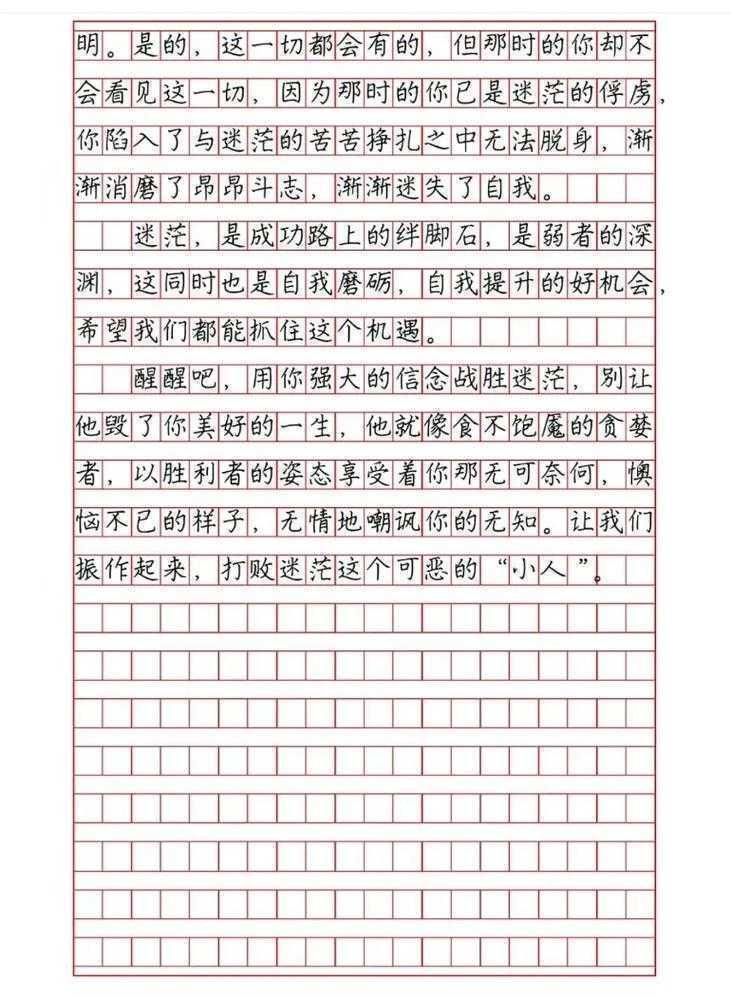 明。是的，这一切都会有的，但那时的你却不
会看见这一切，因为那时的你已是迷茫的俘虏，
你陷入了与迷茫的苦苦挣扎之中无法脱身，渐
渐消磨了昂昂斗志，渐渐迷失了自我。
迷茫，是成功路上的绊脚石，是弱者的深
渊，这同时也是自我磨砺，自我提升的好机会，
希望我们都能抓住这个机遇。
醒醒吧，用你强大的信念战胜迷茫，别让
他毁了你美好的一生，他就像食不饱魇的贪婪
者，以胜利者的姿态享受着你那无可奈何，懊
恼不已的样子，无情地嘲讽你的无知。让我们
振作起来，打败迷茫这个可恶的“小人”。